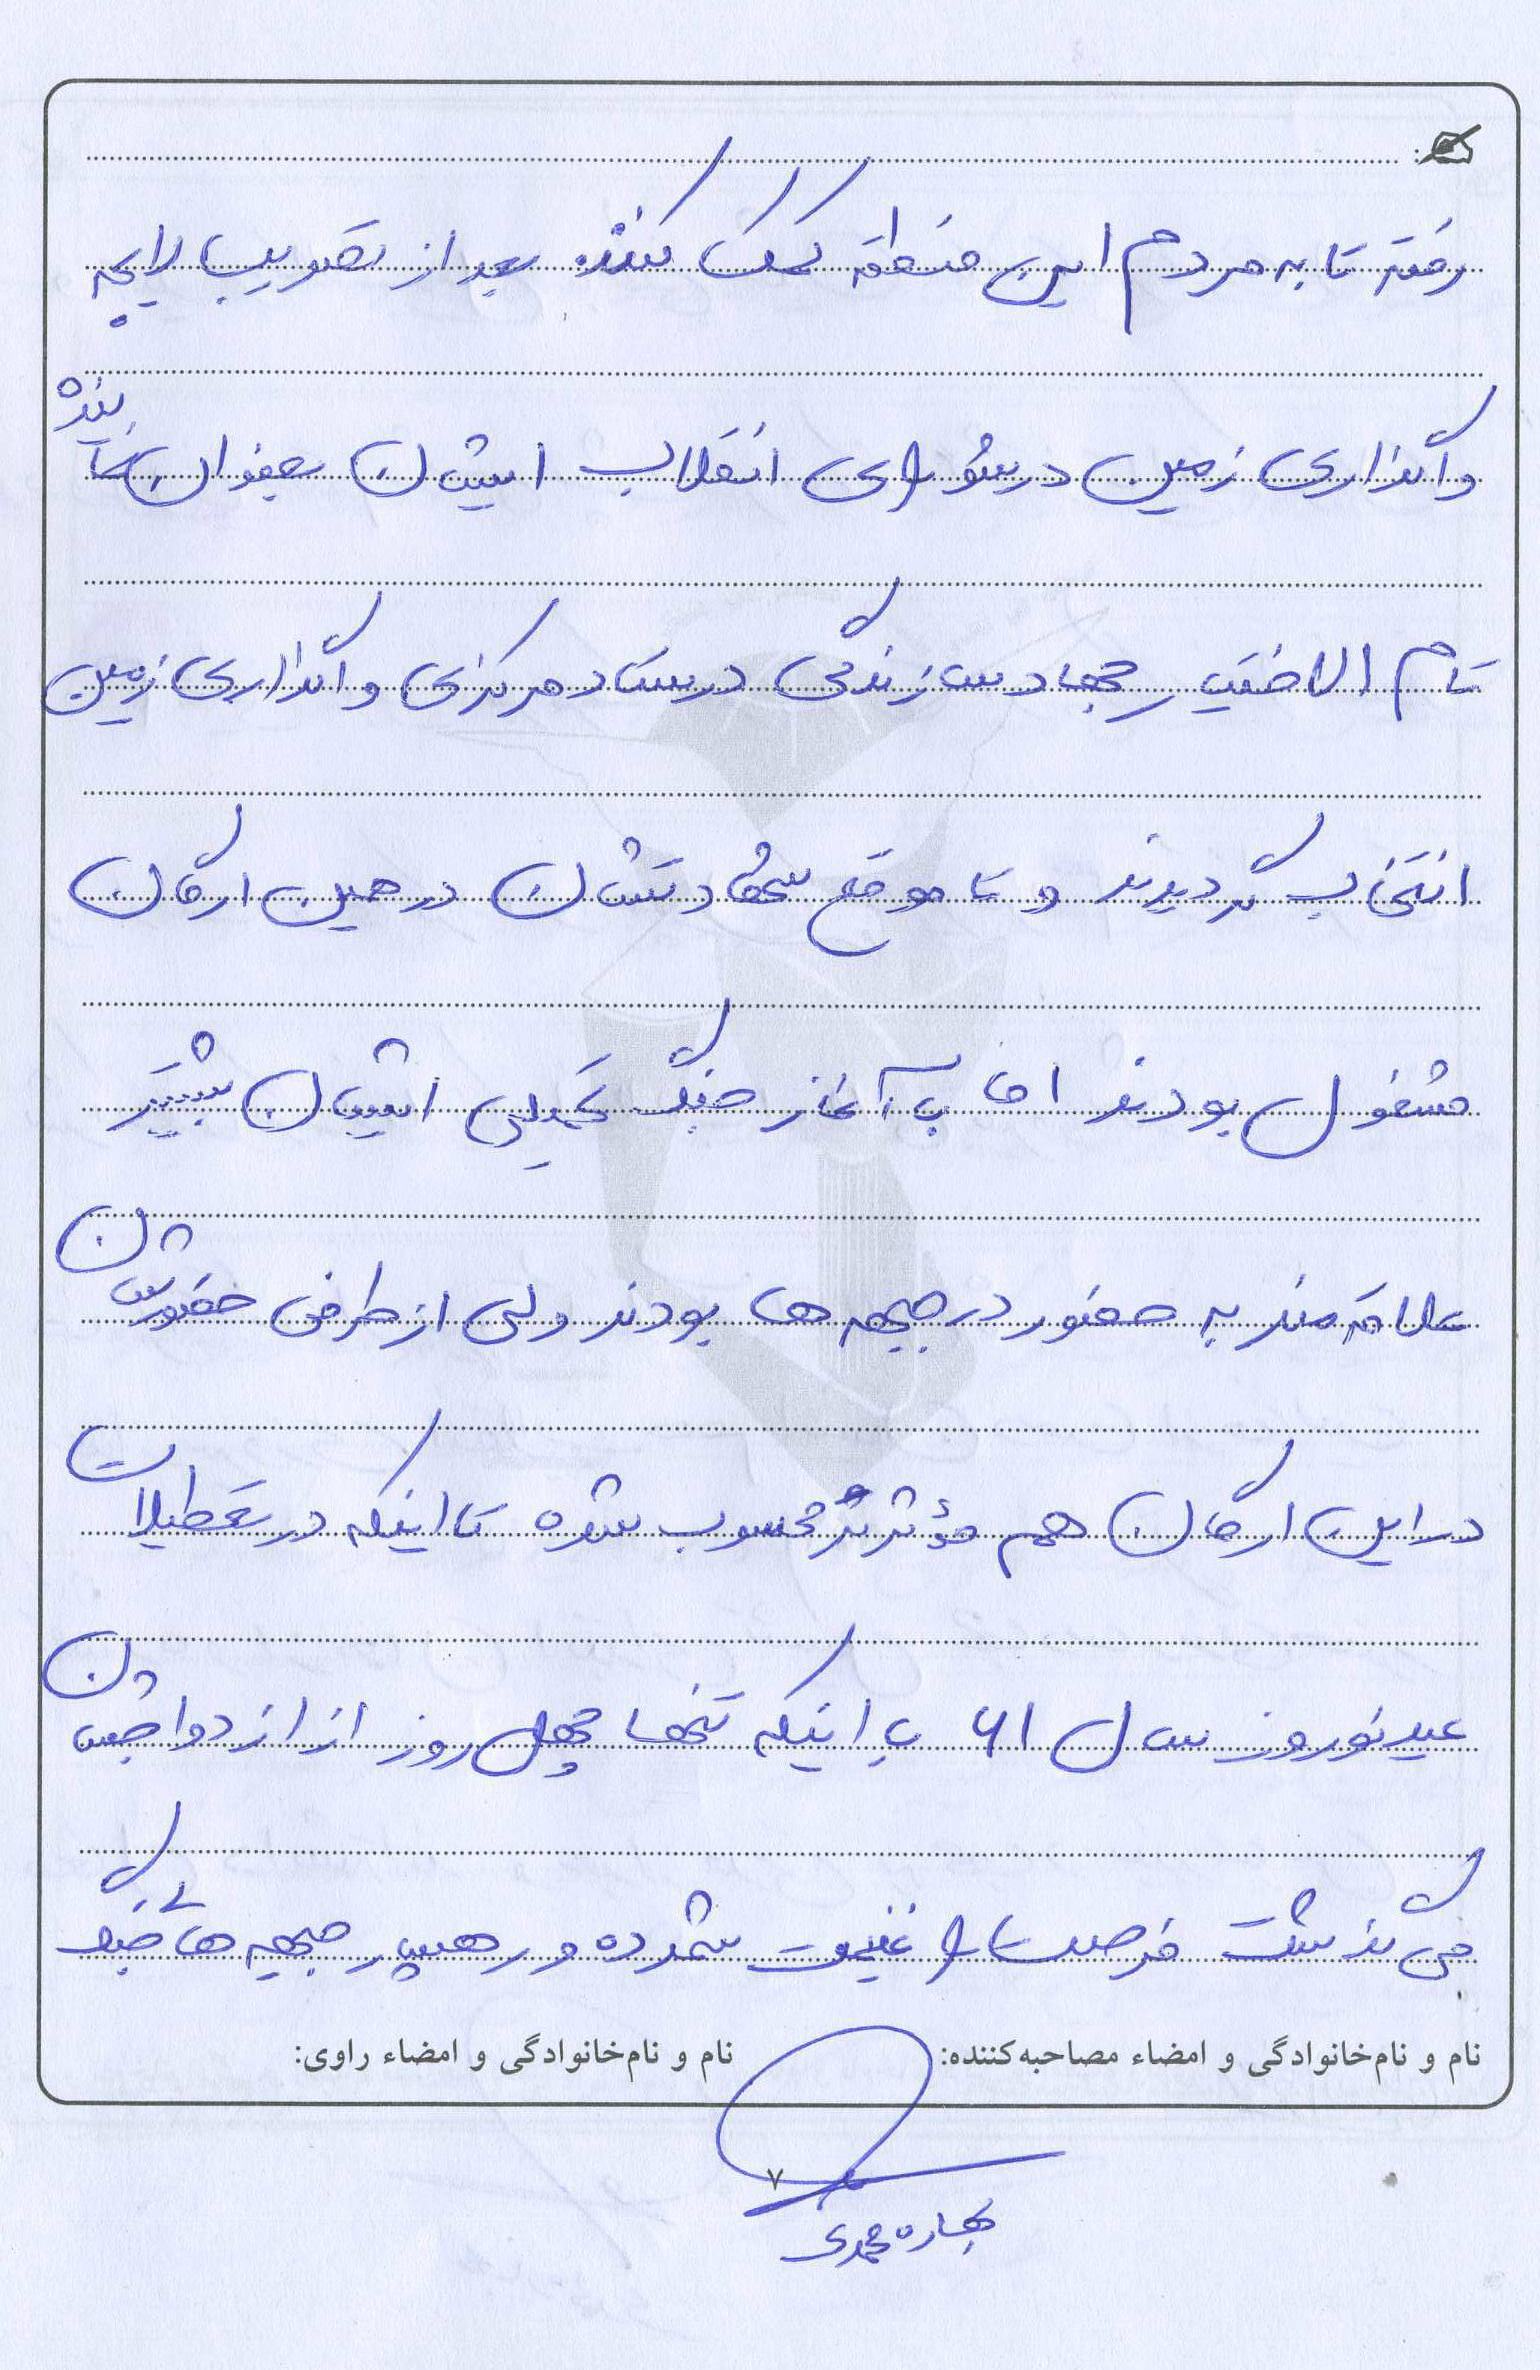 رفته تا به مردم این منطقه کمک کنند. بعد از تصویب لایحه
واگذاری زمین در شورای انقلاب ایشان بعنوان نماینده
تام الاختیار جهاد سازندگی در ستاد مرکزی واگذاری زمین
انتخاب گردیدند و تا موقع شهادتشان در همین ارگان
مشغول بودند اما با آغاز جنگ تحمیلی ایشان بیشتر
علاقه مند به حضور در جبهه ها بودند ولی از طرفی حضورشان
در این ارگان هم مؤثرتر محسوب شده تا اینکه در تعطیلات
عید نوروز سال ۶۱ با اینکه تنها چهل روز از ازدواجشان
می گذشت فرصت را غنیمت شمرده و رهسپار جبهه های جنگ
نام و نام‌خانوادگی و امضاء مصاحبه‌کننده: نام و نام‌خانوادگی و امضاء راوی:
۷
بهاره محمدی